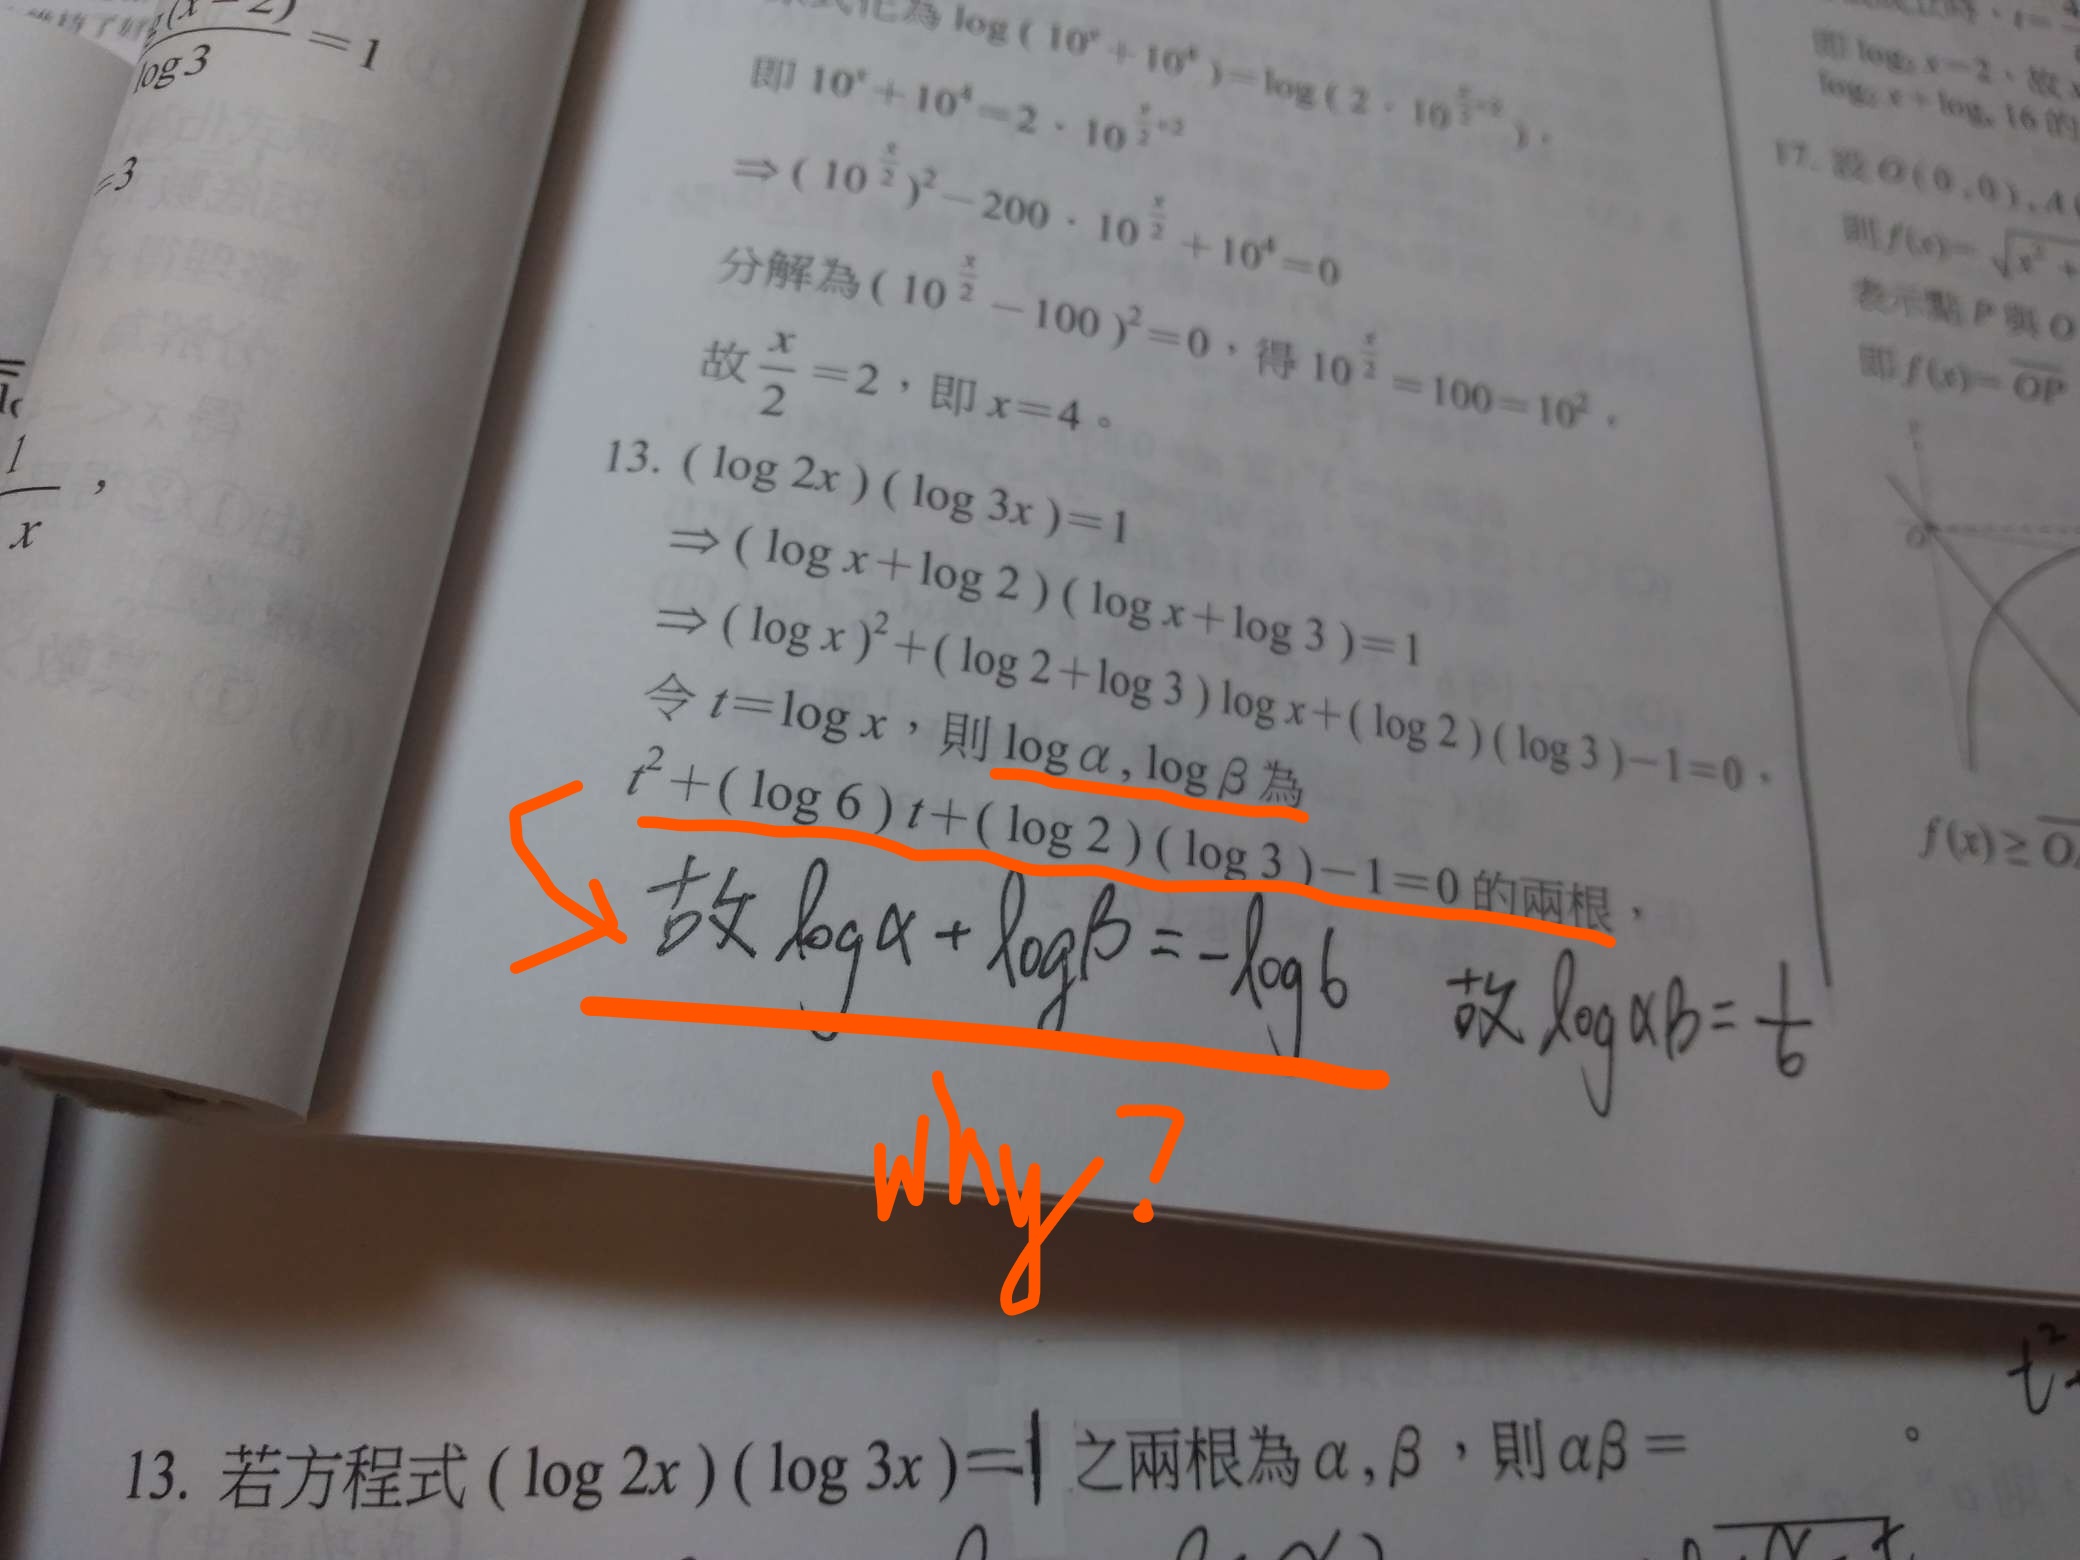 (x−2)/log 3 = 1
=3
1/x ,
化為 log ( 10ˣ + 10⁴ )=log ( 2 · 10^(x/2+2) ) ,
即 10ˣ + 10⁴ = 2 · 10^(x/2+2)
⇒ ( 10^(x/2) )² − 200 · 10^(x/2) + 10⁴ = 0
分解為 ( 10^(x/2) − 100 )² = 0，得 10^(x/2) = 100 = 10² ,
故 x/2 = 2，即 x=4。
13. ( log 2x ) ( log 3x )=1
⇒ ( log x+log 2 ) ( log x+log 3 )=1
⇒ ( log x )² + ( log 2+log 3 ) log x+ ( log 2 ) ( log 3 )−1=0，
令 t=log x，則 log α , log β 為
t² + ( log 6 ) t + ( log 2 ) ( log 3 )−1=0 的兩根，
故 logα + logβ = -log6 故 logαβ = 1/6
why?
即 log₂ x=2，故
17. 設 O ( 0 , 0 ) , A (
則 f(x)= √x² +
表示點 P 與 O
即 f(x)= OP
O
f(x) ≥ O
t²
13. 若方程式 ( log 2x ) ( log 3x )=1 之兩根為 α , β，則 αβ= 。